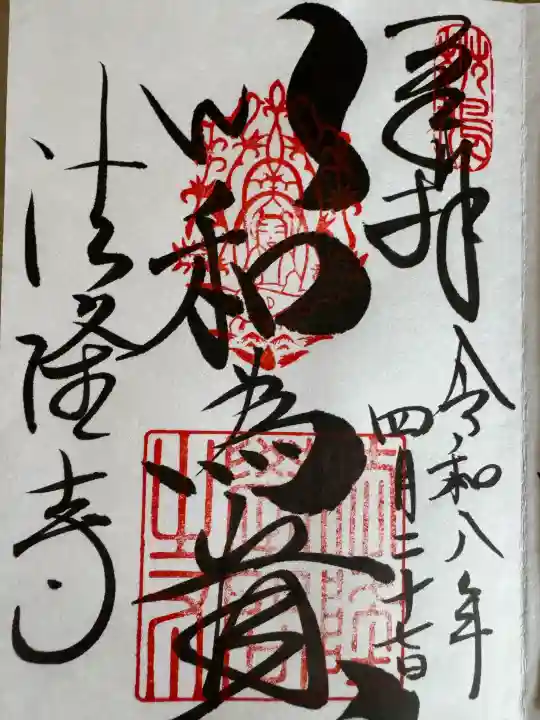 奉拝
令和八年
四月二十七日
以和為貴
法隆寺